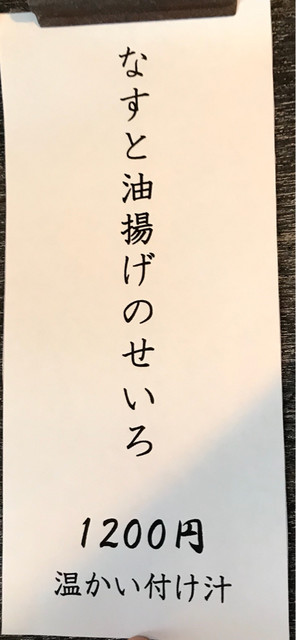 なすと油揚げのせいろ
1200円
温かい付け汁